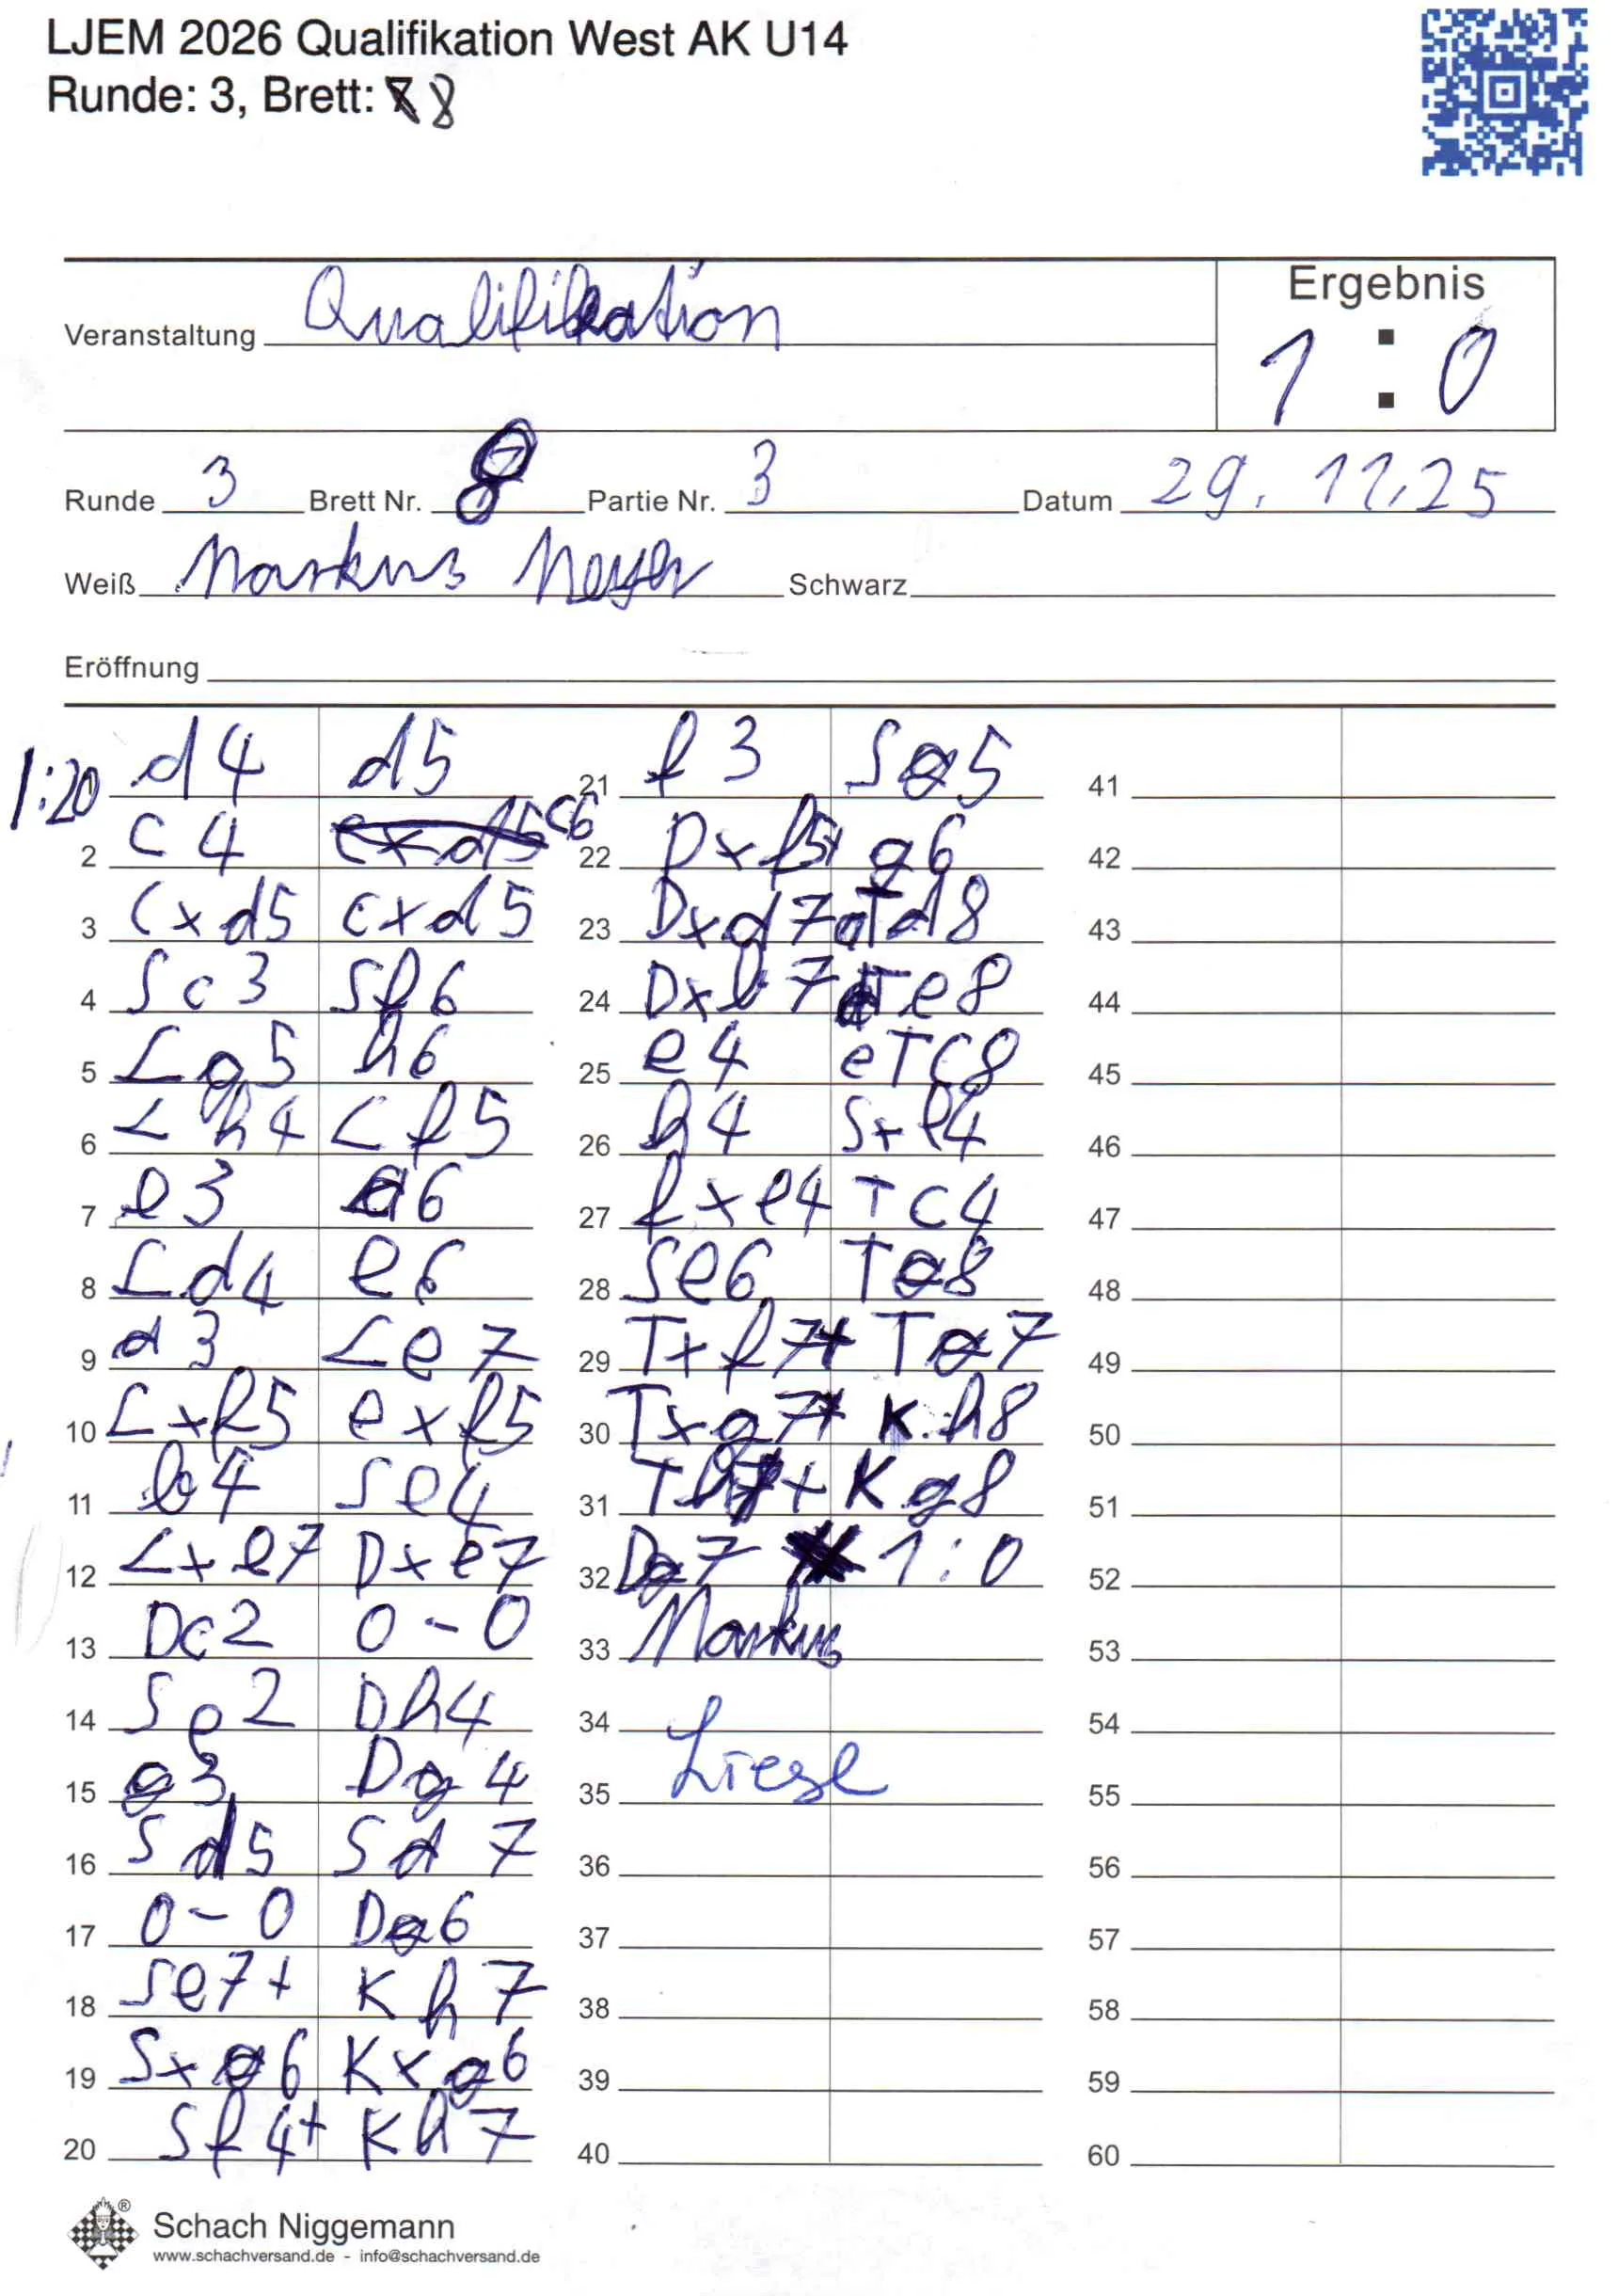 LJEM 2026 Qualifikation West AK U14
Runde: 3, Brett: 8
Veranstaltung Qualifikation
Ergebnis
1 : 0
Runde 3 Brett Nr. 8 Partie Nr. 3 Datum 29. 11.25
Weiß Markus Meyer Schwarz
Eröffnung
1:20 d4 d5
2 c4 c6
3 cxd5 cxd5
4 Sc3 Sf6
5 Lg5 h6
6 Lh4 Lf5
7 e3 a6
8 Ld4 e6
9 d3 Le7
10 Lxf5 exf5
11 b4 Se4
12 Lxe7 Dxe7
13 Dc2 0-0
14 Se2 Dh4
15 g3 Dg4
16 Sd5 Sd7
17 0-0 Dg6
18 Se7+ Kh7
19 Sxg6 Kxg6
20 Sf4+ Kh7
21 f3 Sg5
22 Dxf5+ g6
23 Dxd7 aTd8
24 Dxb7 Te8
25 e4 eTc8
26 h4 Sxe4
27 fxe4 Tc4
28 Se6 Ta8
29 Txf7+ Ta7
30 Txg7+ K.h8
31 Th7+ Kg8
32 Dg7 1:0
33 Markus
34
35 Liese
36
37
38
39
40
41
42
43
44
45
46
47
48
49
50
51
52
53
54
55
56
57
58
59
60
Schach Niggemann
www.schachversand.de - info@schachversand.de